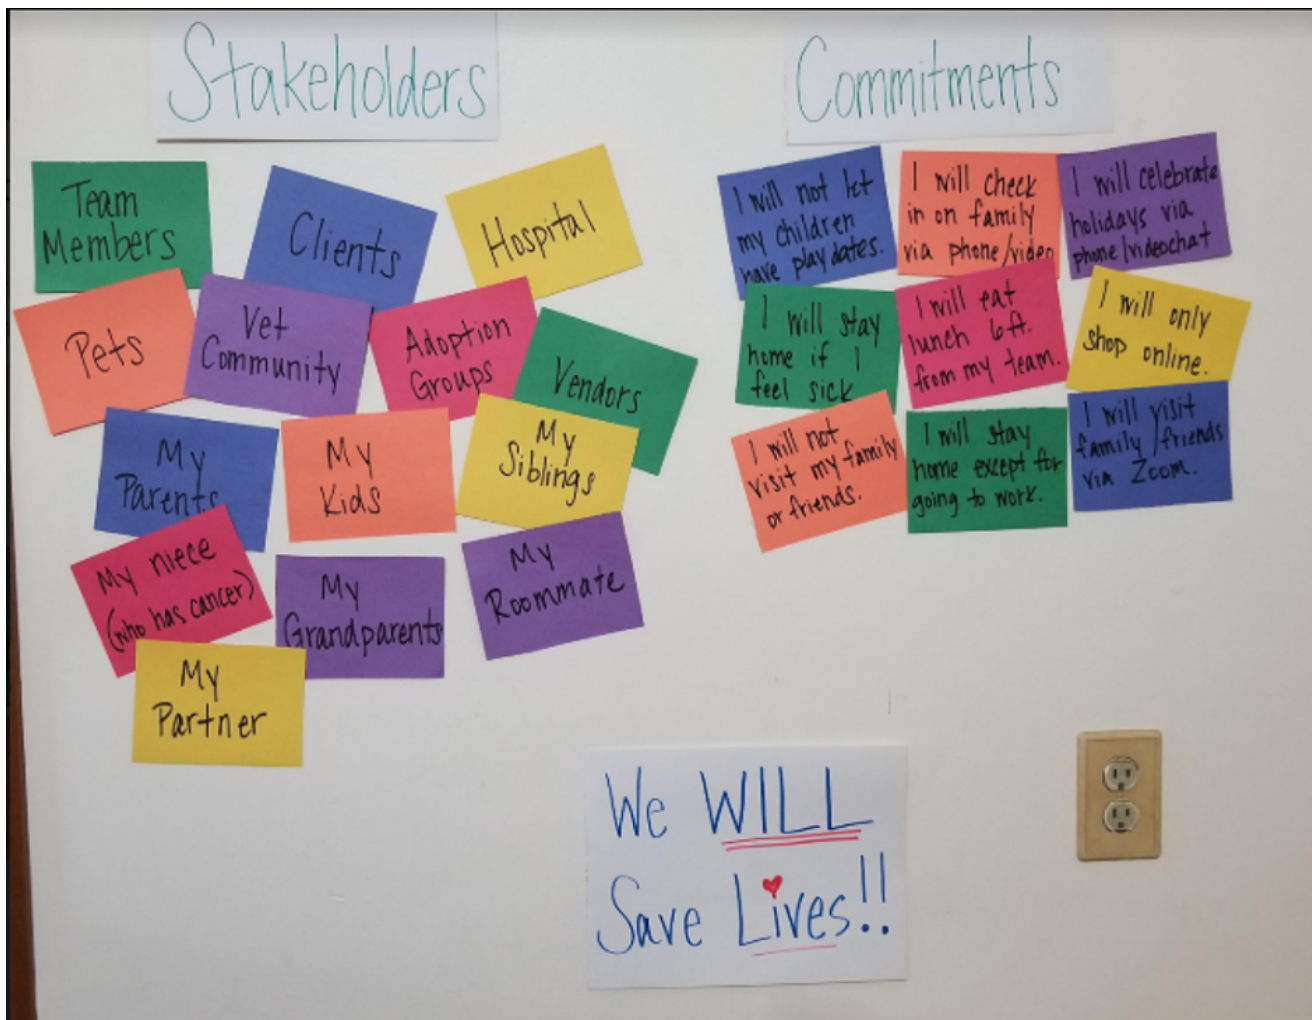 Stakeholders
Team
Members
Clients
Hospital
Pets
Vet
Community
Adoption
Groups
Vendors
My
Parents
My
Kids
My
Siblings
My niece
(who has cancer)
My
Grandparents
My
Roommate
My
Partner
Commitments
I will not let
my children
have playdates.
I will check
in on family
via phone/video
I will celebrate
holidays via
phone/videochat
I will stay
home if I
feel sick
I will eat
lunch 6ft.
from my team.
I will only
shop online.
I will not
visit my family
or friends.
I will stay
home except for
going to work.
I will visit
family/friends
via Zoom.
We WILL
Save Lives!!